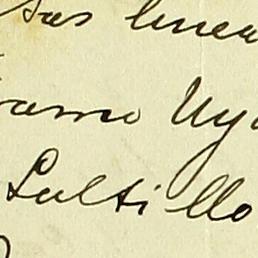 sus linea
ramo Uga
Saltillo